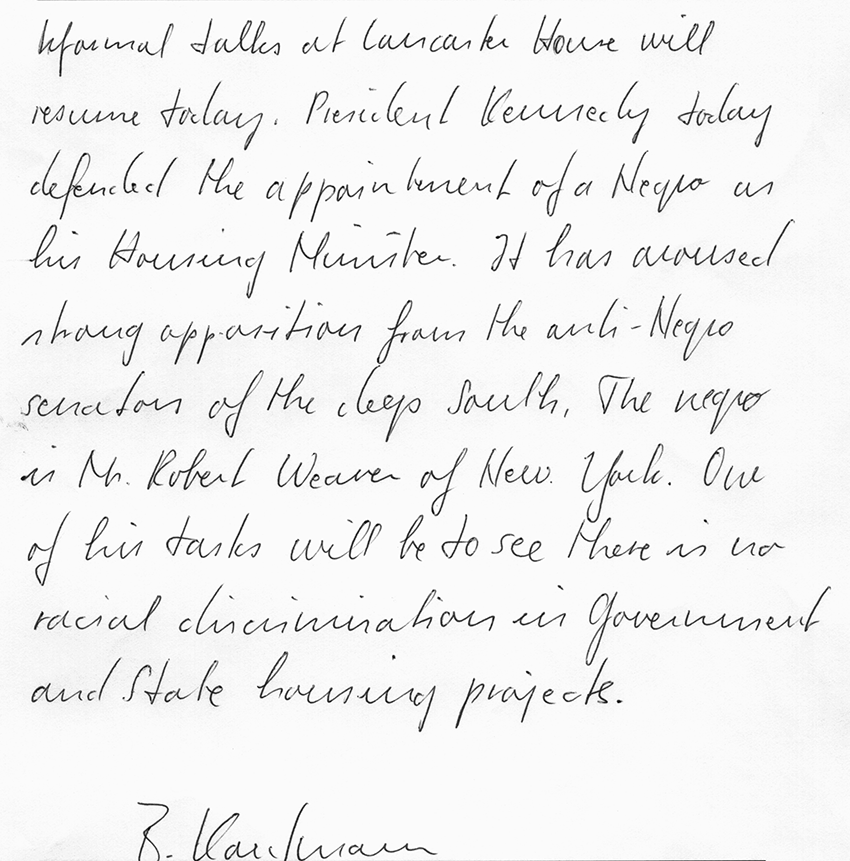 Informal talks at Lancaster House will
resume today. President Kennedy today
defended the appointment of a Negro as
his Housing Minister. It has aroused
strong opposition from the anti-Negro
senators of the deep South. The negro
is Mr. Robert Weaver of New York. One
of his tasks will be to see there is no
racial discrimination in Government
and State housing projects.
B. Kaufmann